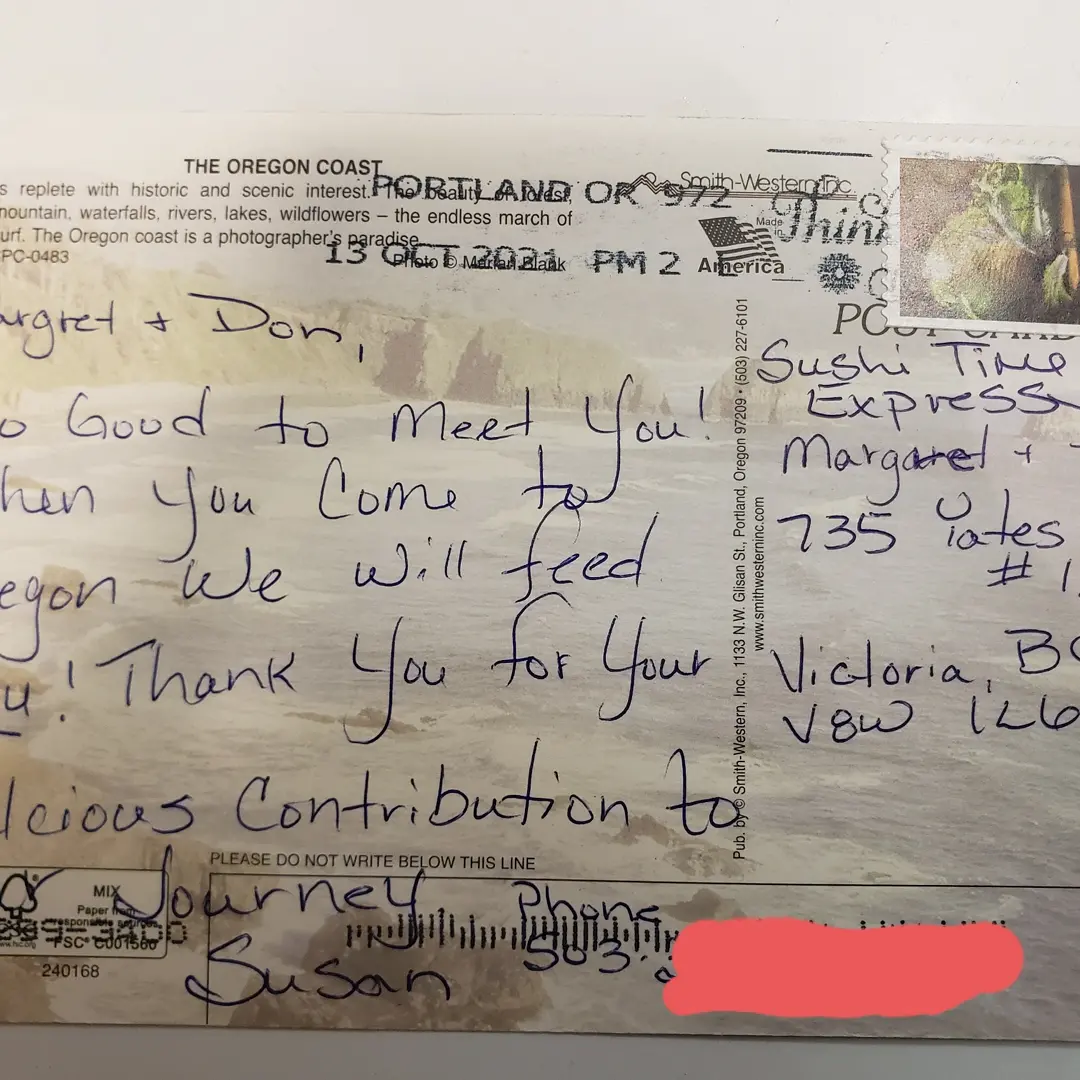 THE OREGON COAST
s replete with historic and scenic interest. The beauty of forest,
mountain, waterfalls, rivers, lakes, wildflowers – the endless march of
urf. The Oregon coast is a photographer's paradise.
PC-0483
Photo © Marian Blank
PORTLAND OR 972
13 OCT 2021 PM 2 L
Smith-Western Inc.
Made in
America
Think
POST CARD
argret + Don,
o Good to Meet You!
hen you Come to
egon We Will feed
u! Thank You for Your
lcious Contribution to
Journey
Susan
Phone
503.
Sushi Time
Express
Margaret +
735 Yates
# 1
Victoria, BC
V8W 1L6
Pub. by © Smith-Western, Inc., 1133 N.W. Glisan St., Portland, Oregon 97209 • (503) 227-6101
www.smithwesterninc.com
PLEASE DO NOT WRITE BELOW THIS LINE
MIX
Paper from
responsible sources
FSC® C001586
240168